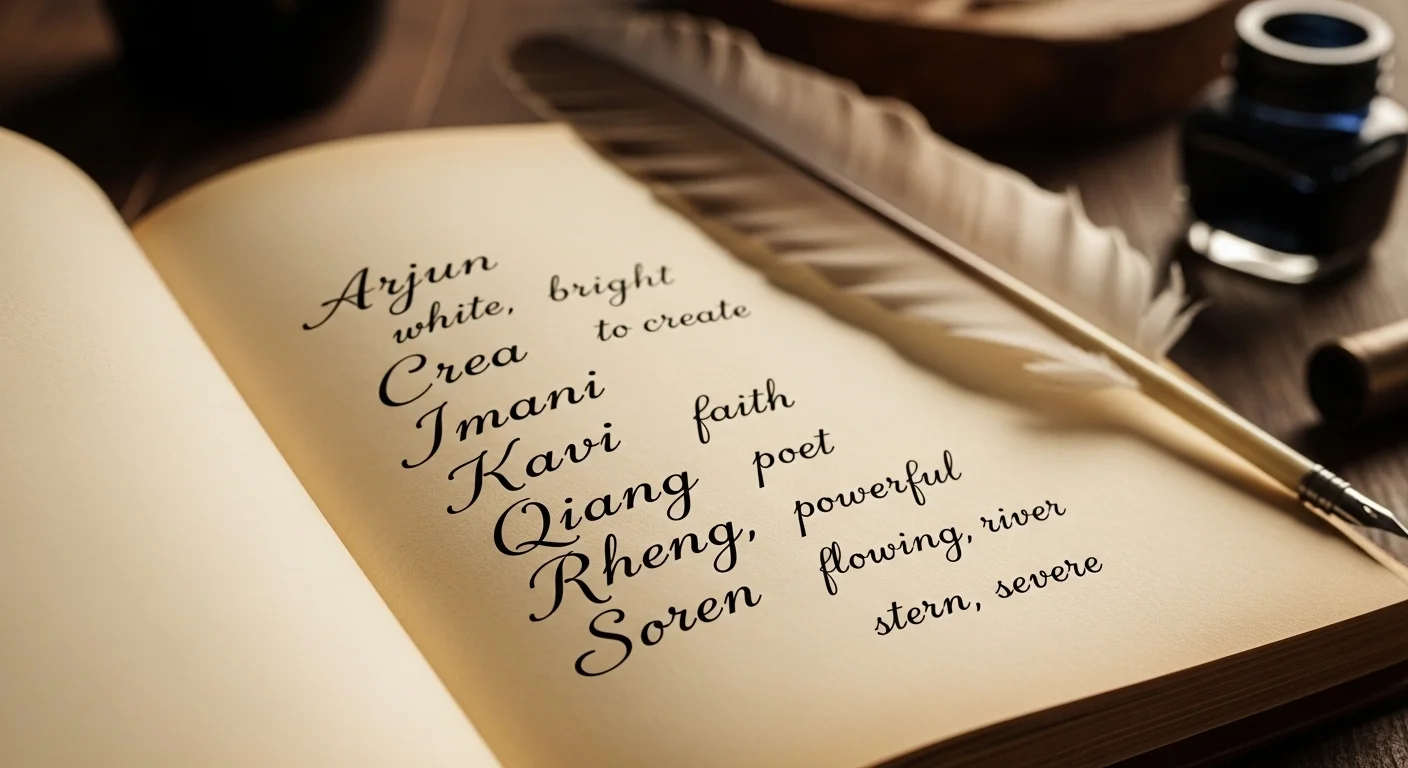 Arjun
white, bright
Crea to create
Imani
Kavi faith
Qiang poet
Rheng, powerful
Soren flowing, river
stern, severe